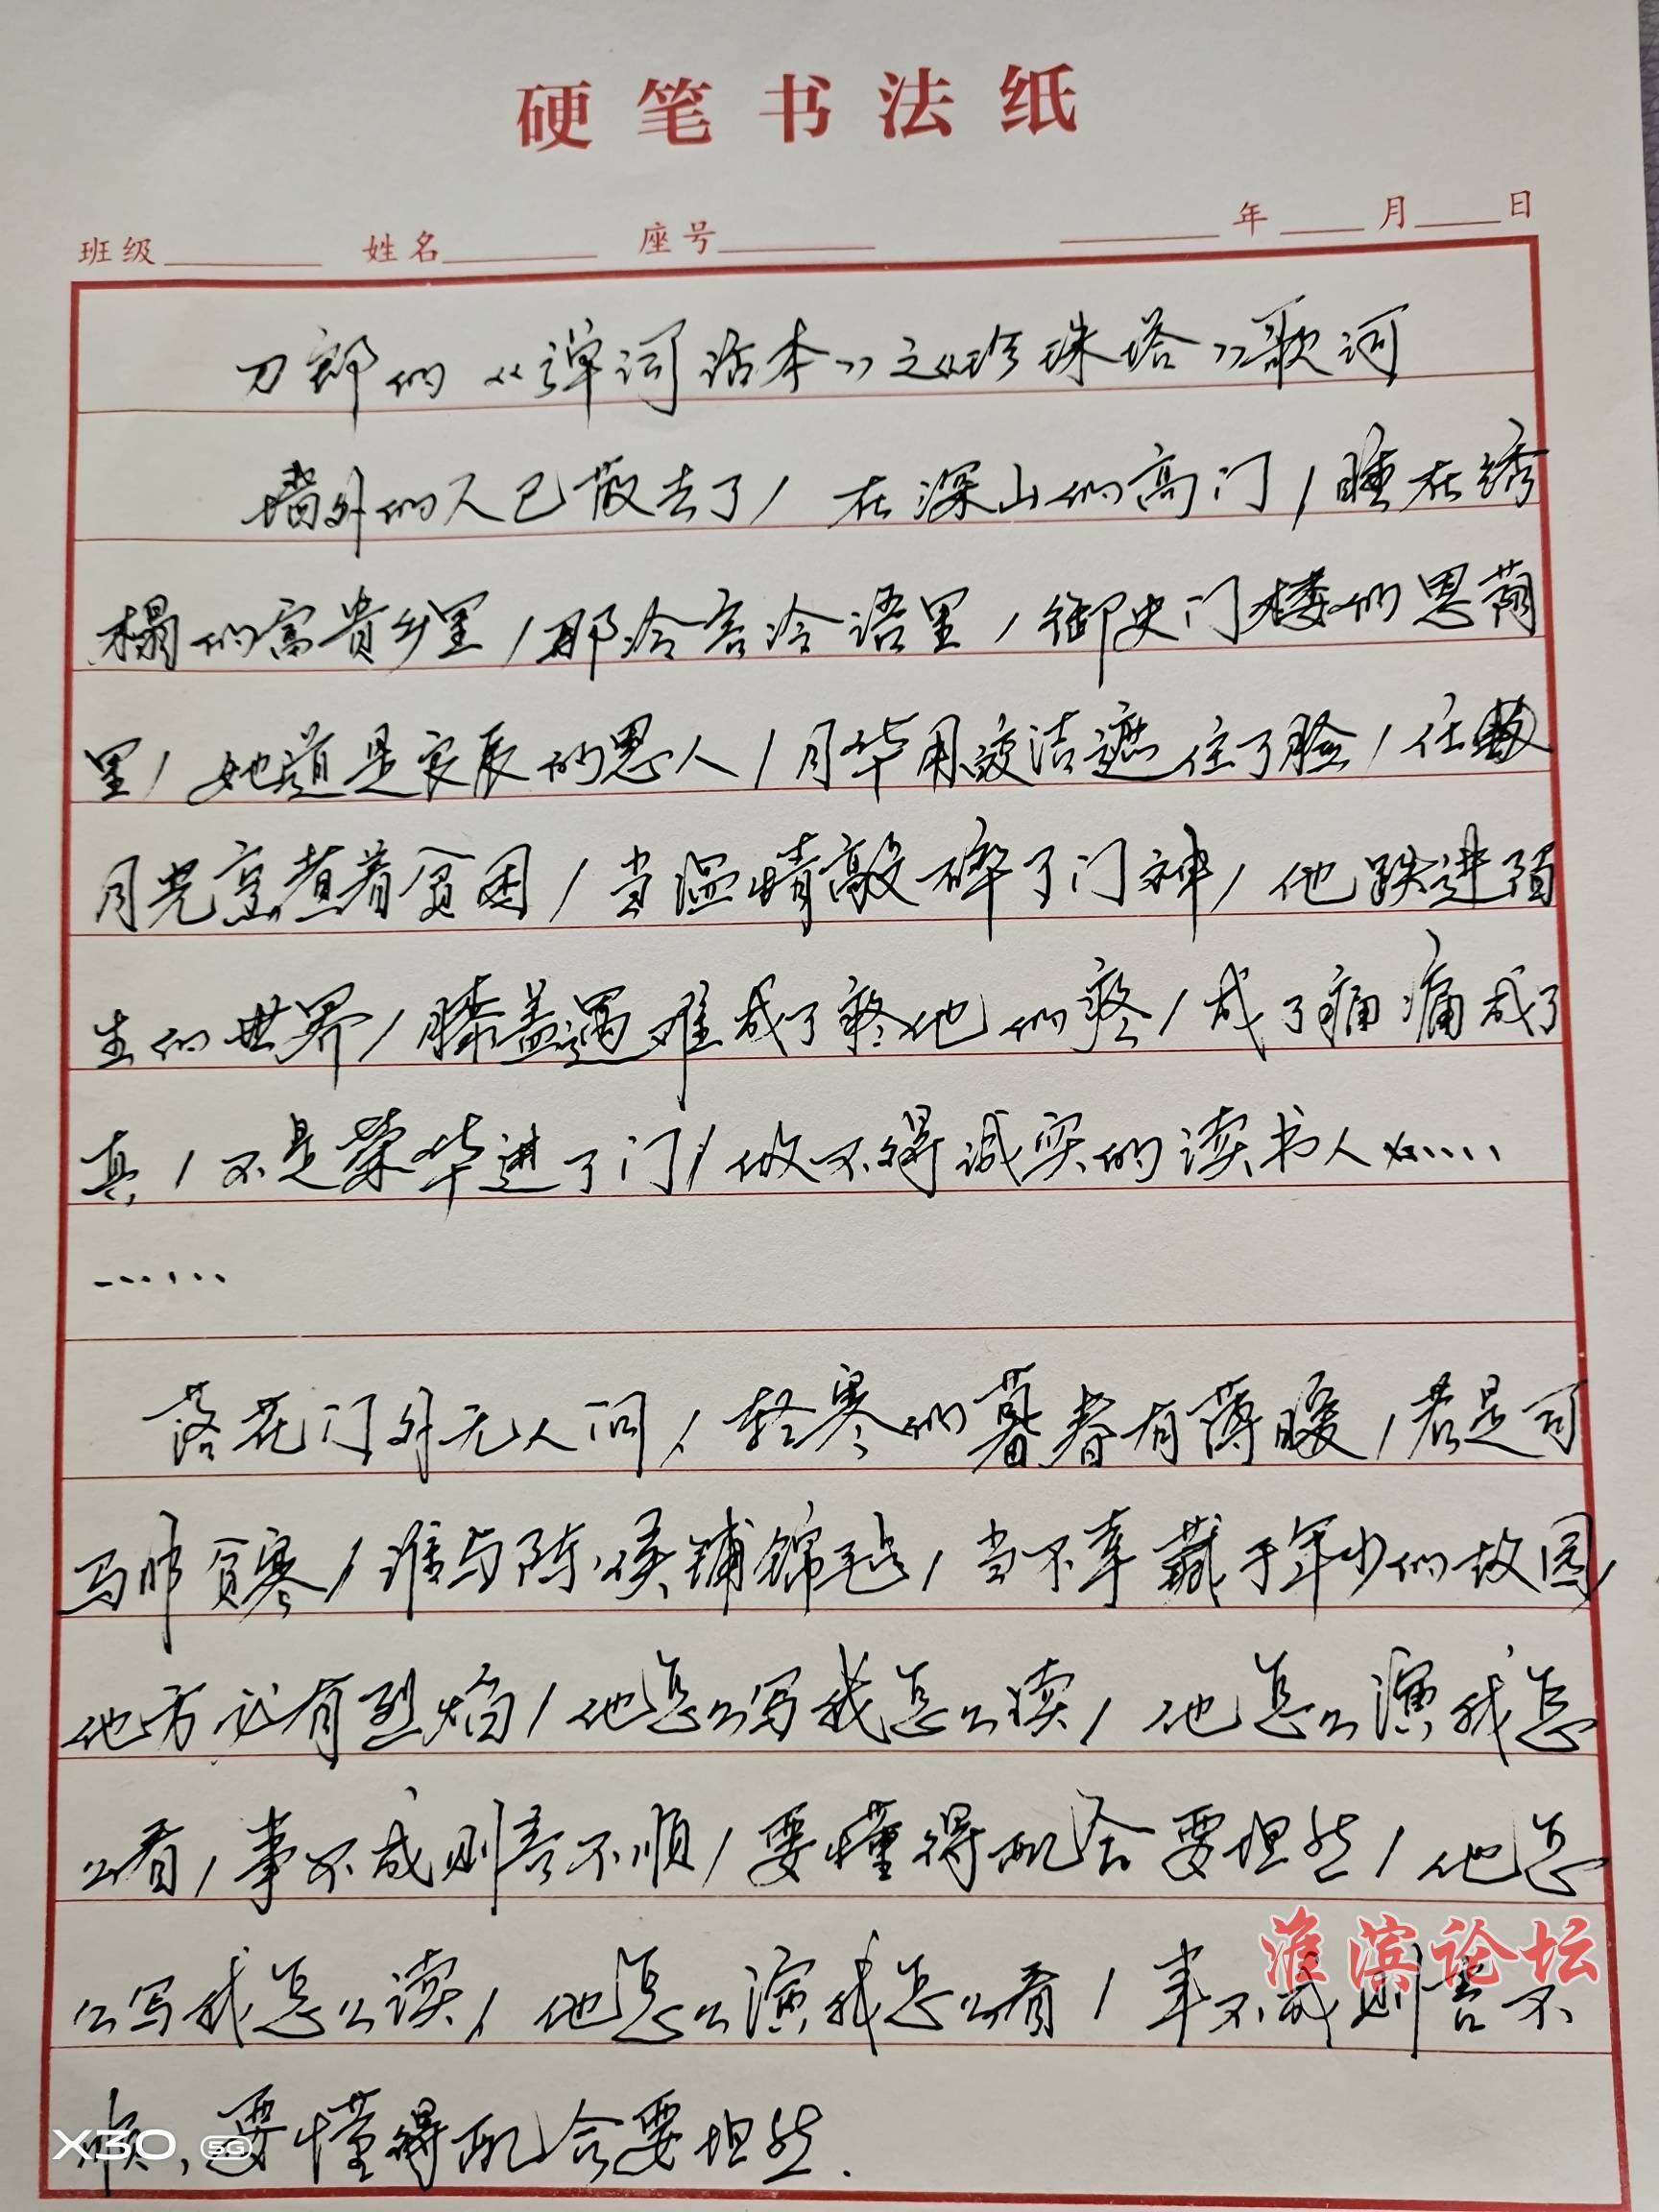 硬笔书法纸
班级 姓名 座号 年 月 日
刀郎的《弹词话本》之《珍珠塔》歌词
墙外的人已散去了,在深山的高门,睡在绣
榻的富贵乡里,那冷言冷语里,御史门楼的恩荫
里,她道是良辰的恩人,月华用皎洁遮住了脸,任
月光烹煮着贫困,当温情敲碎了门神,他跌进陌
生的世界,膝盖遇难成了疼他的疼,成了痛痛成了
真,不是荣华进了门,做不得诚实的读书人……
……
落花门外无人问,轻寒的暮春有薄暖,君是司
马帅贫寒,谁与陈侯铺锦毡,当不幸藏于年少的故园,
他方必有烈焰,他怎么写我怎么读,他怎么演我怎
么看,事不成则言不顺,要懂得配合要坦然,他怎
么写我怎么读,他怎么演我怎么看,事不成则言不
顺,要懂得配合要坦然.
淮滨论坛
X30 5G